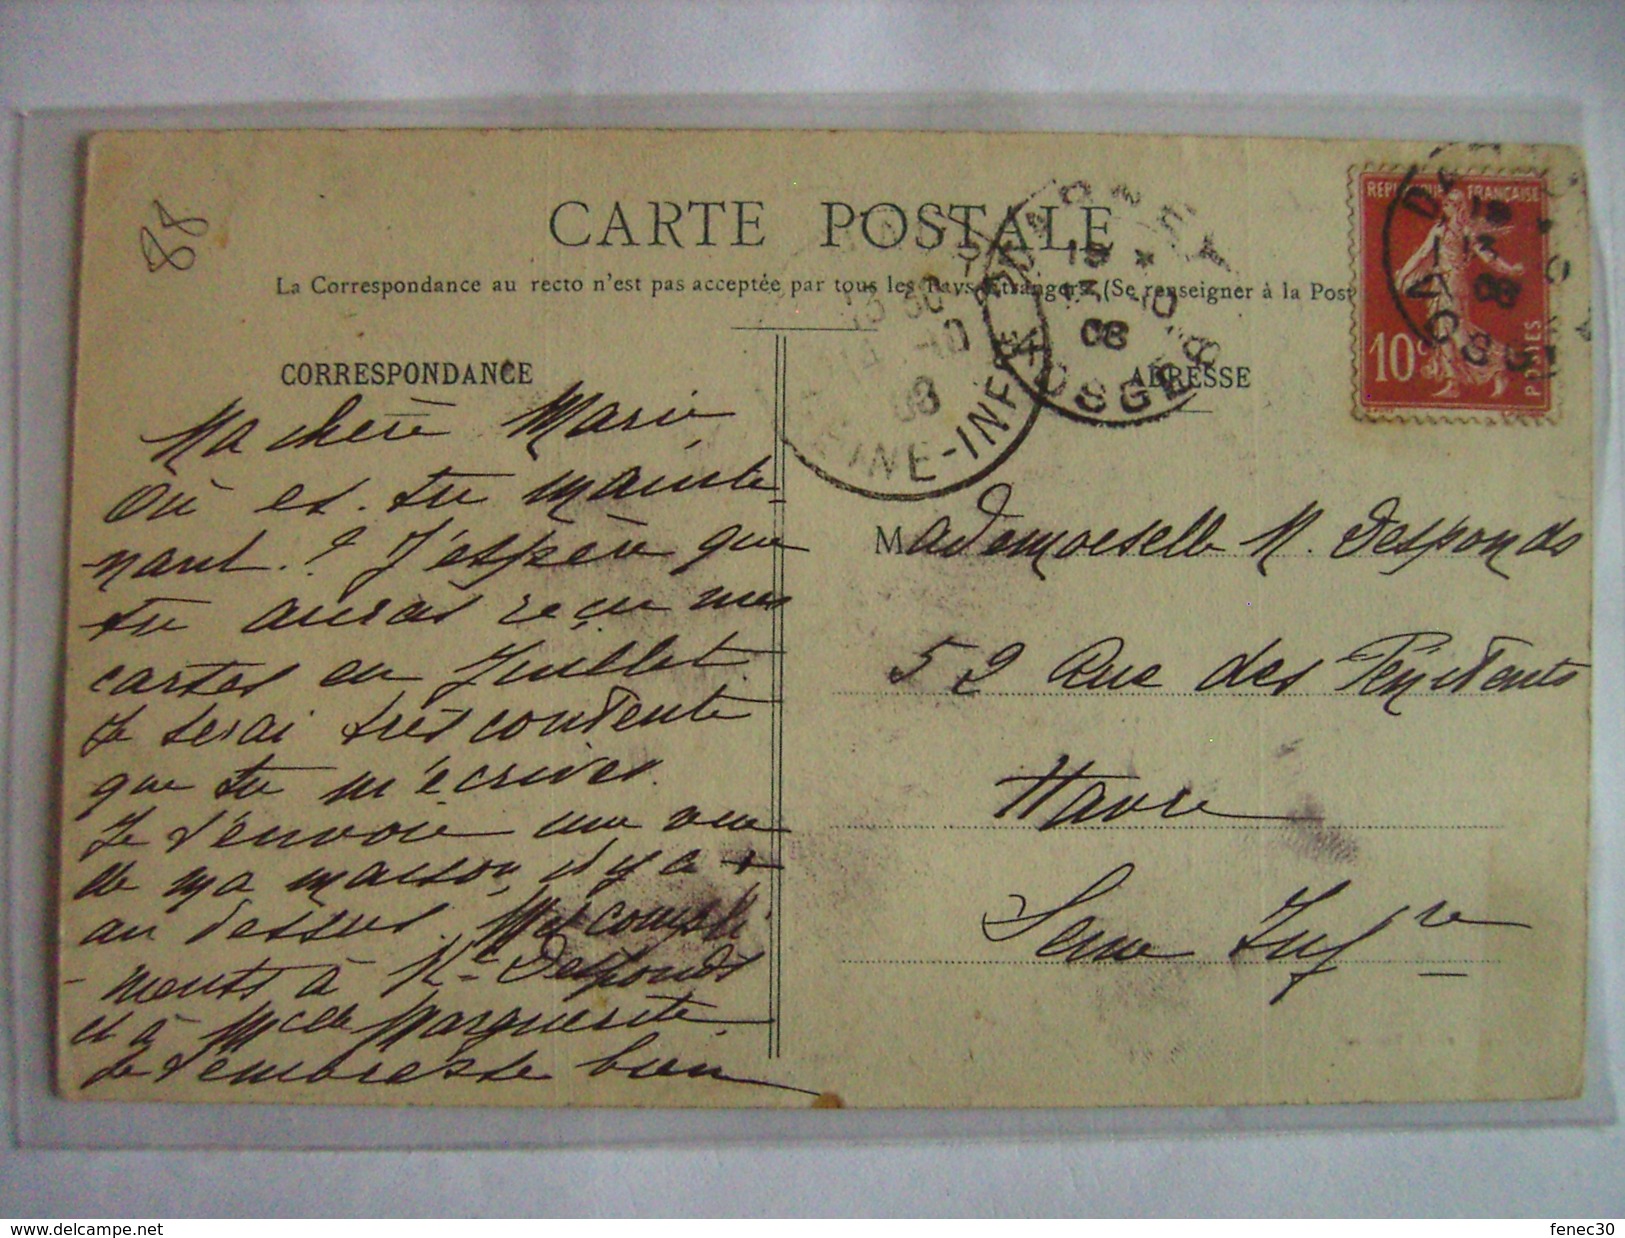 88
CARTE POSTALE
La Correspondance au recto n'est pas acceptée par tous les Pays Etrangers (Se renseigner à la Post
CORRESPONDANCE
Ma chère Marie
Où es-tu mainte-
nant.? J'espère que
tu auras reçu mes
cartes en Juillet.
Je serai très contente
que tu m'écrives.
Je t'envoie une vue
de ma maison, il y a +
au dessus. Mes compli
-ments à Mme Desponds
et à Melle Marguerite.
Je t'embrasse bien
ADRESSE
Mademoiselle M. Desponds
52 Rue des Pénitents
Havre
Seine Infre
REPUBLIQUE FRANÇAISE
10c
POSTES
13 30
14 -10
08
SEINE-INFRE
VOSGES
15
13 -10
08
VOSGES
delcampe.net
fenec30